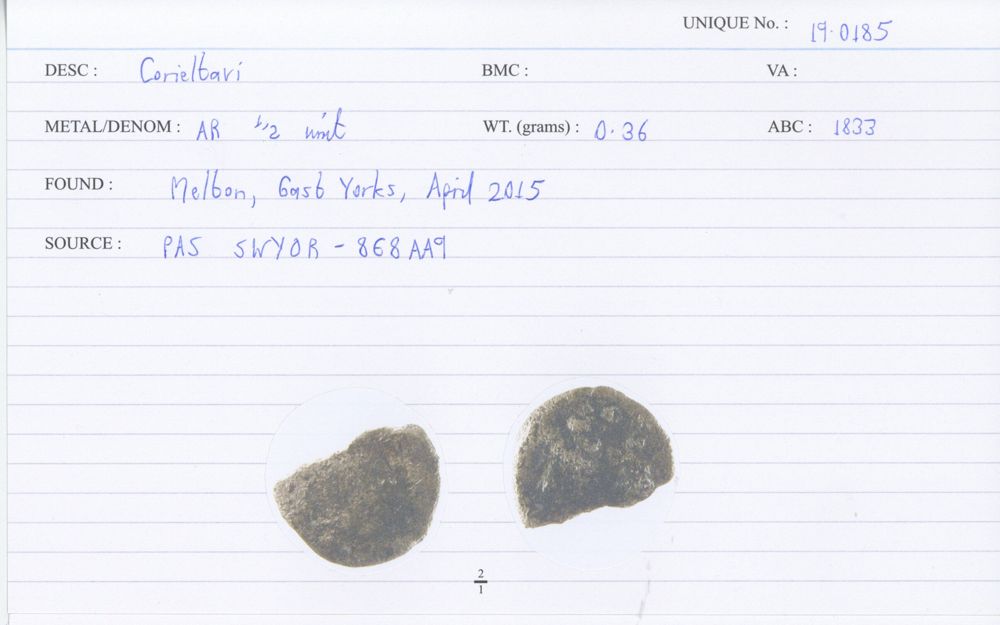 UNIQUE No. : 19.0185
DESC : Corieltavi BMC : VA :
METAL/DENOM : AR 1/2 unit WT. (grams) : 0.36 ABC : 1833
FOUND : Melton, East Yorks, April 2015
SOURCE : PAS SWYOR - 868AA9
2
1